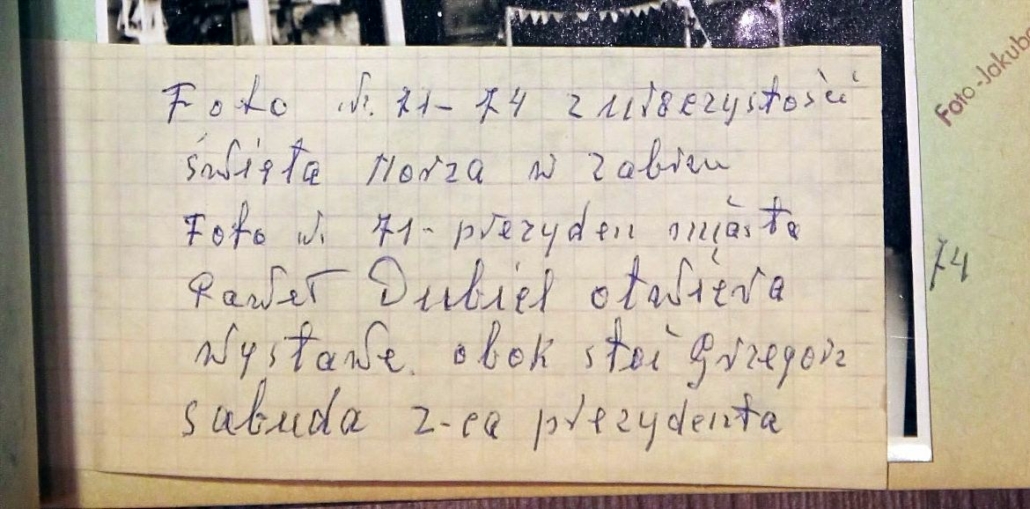 Foto Nr. 71-74 z uroczystości
święta Morza w Zabrzu
Foto Nr. 71- prezyden miasta
Paweł Dubiel otwiera
wystawe. obok stoi Grzegorz
Sabuda z-ca prezydenta
Foto-Jakub
74